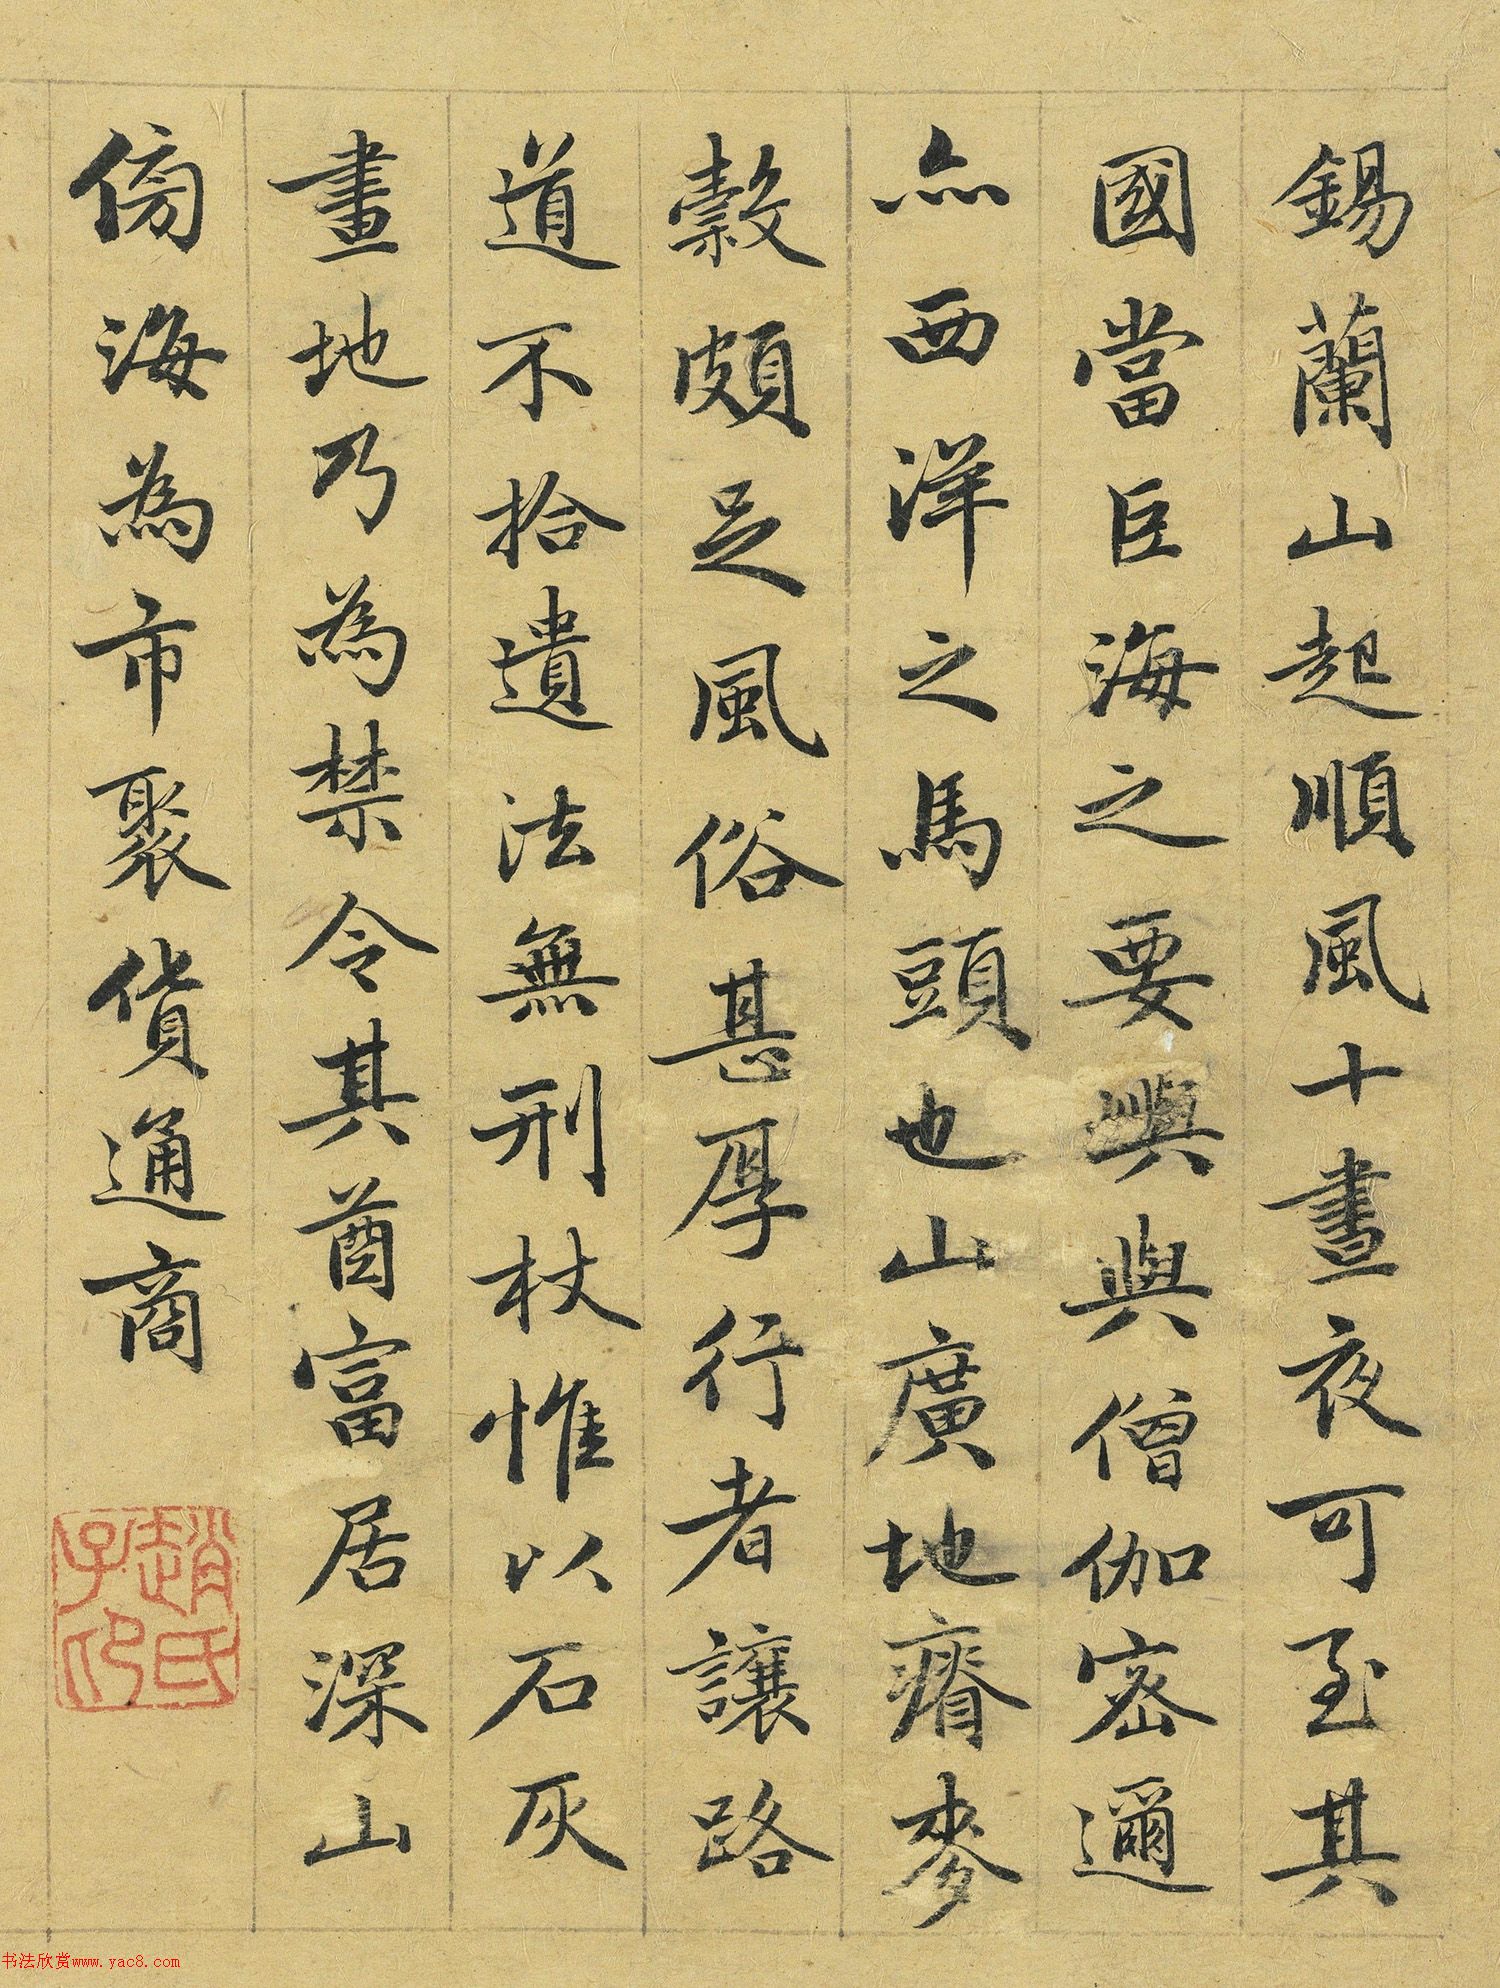 錫蘭山起順風十晝夜可至其
國當巨海之要嶼與僧伽密邇
亦西洋之馬頭也山廣地瘠麥
穀頗足風俗甚厚行者讓路
道不拾遺法無刑杖惟以石灰
畫地乃為禁令其酋富居深山
傍海為市聚貨通商
趙氏
子印
书法欣赏www.yac8.com